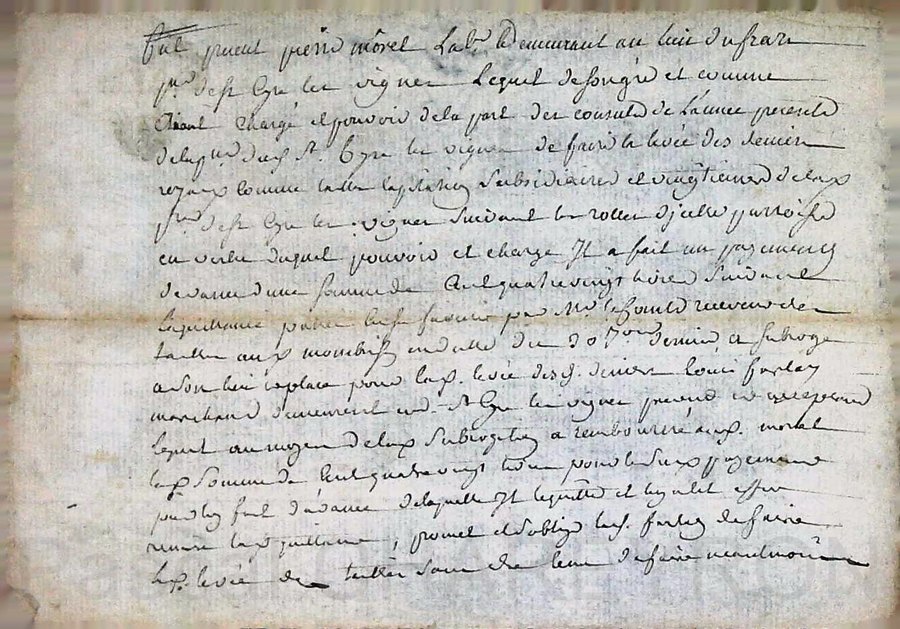 fut present pierre môret Labr. demeurant au lieu du
prse de st Cyre les vignes Lequel de son gré et comme
chargé et pouvoir de la part des consuls de L'année presente
de la prse dud. St. Cyre les vignes de faire la levée des deniers
royaux comme taille capitation subsidiaires et vingtiemes de lad.
prse de st Cyre les vignes suivant les rolles d'jcelle parroisse
en vertu duquel pouvoir et charge Jl a fait un payement
d'avance d'une somme de Cent quatre vingt livres suivant
la quittance passée en sa faveur par Mr. receveur des
tailles aux en datte du 30 7bre dernier et subroge
a son lieu et place pour lad. levée desd. deniers Louis
marchand demeurant aud. St Cyre les vignes present et acceptant
lequel au moyen de lad. subrogation a remboursé aud. moret
lad. somme de Cent quatre vingt livres pour le susd. payement
par luy fait d'avance de laquelle Jl le quitte et luy a
remis lad. quittance, promet et s'oblige led. de faire
lad. levée de tailles sans de faire neantmoins